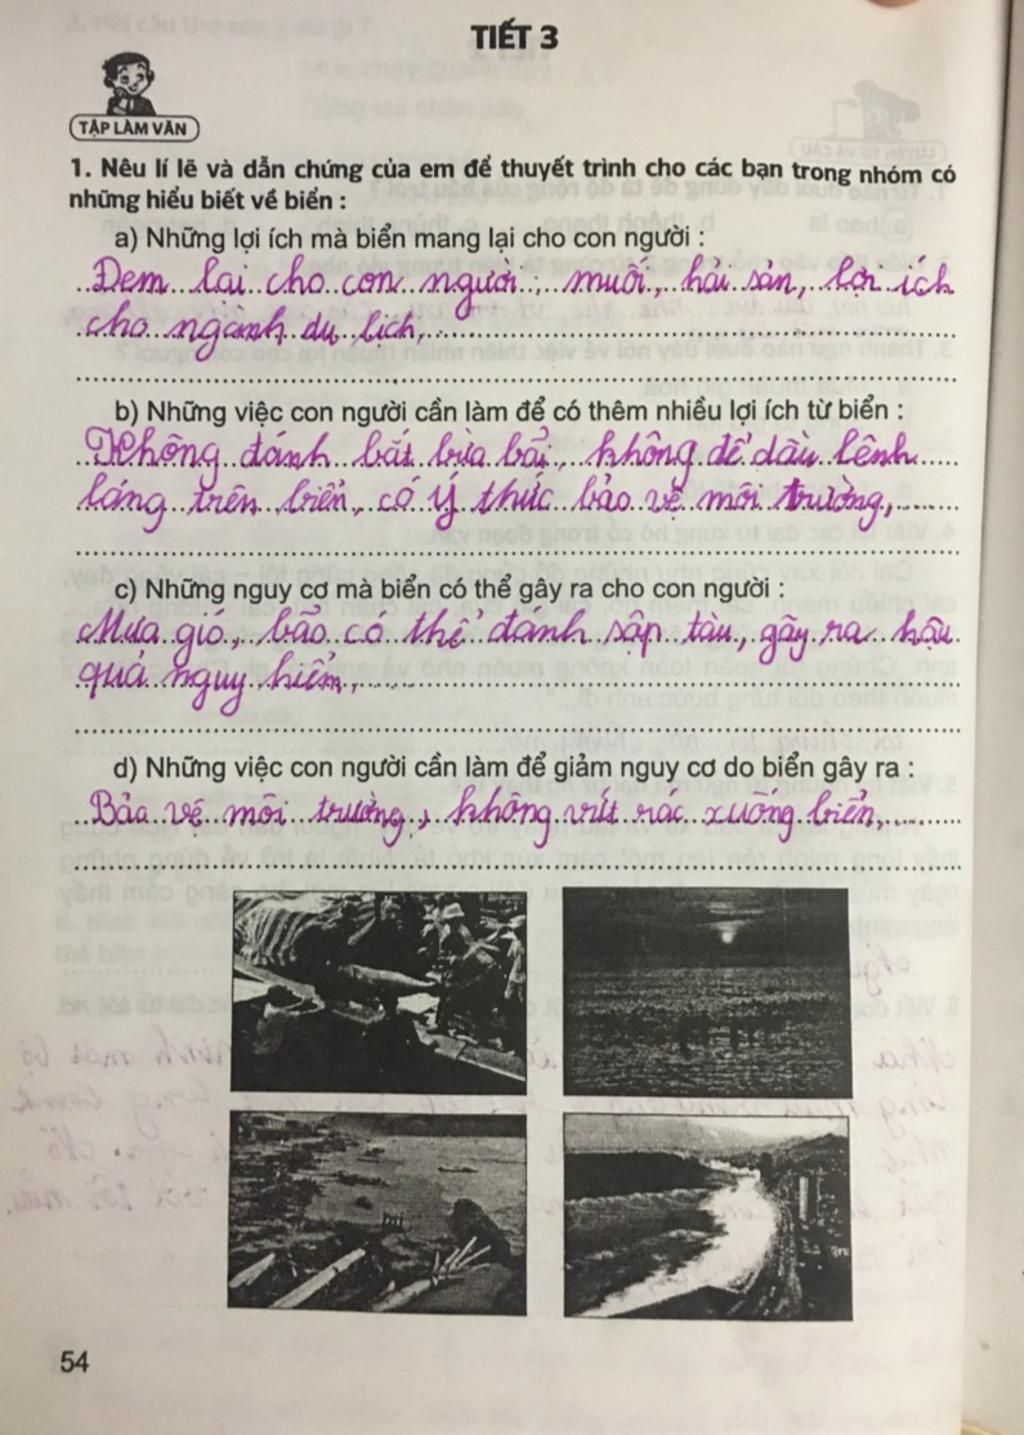 TIẾT 3
TẬP LÀM VĂN
1. Nêu lí lẽ và dẫn chứng của em để thuyết trình cho các bạn trong nhóm có
những hiểu biết về biển :
a) Những lợi ích mà biển mang lại cho con người :
Đem lại cho con người : muối, hải sản, lợi ích
cho ngành du lịch,
b) Những việc con người cần làm để có thêm nhiều lợi ích từ biển :
Không đánh bắt bừa bãi, không để dầu lênh
láng trên biển, có ý thức bảo vệ môi trường,
c) Những nguy cơ mà biển có thể gây ra cho con người :
Mưa gió, bão có thể đánh sập tàu, gây ra hậu
quả nguy hiểm,
d) Những việc con người cần làm để giảm nguy cơ do biển gây ra :
Bảo vệ môi trường, không vứt rác xuống biển,
54